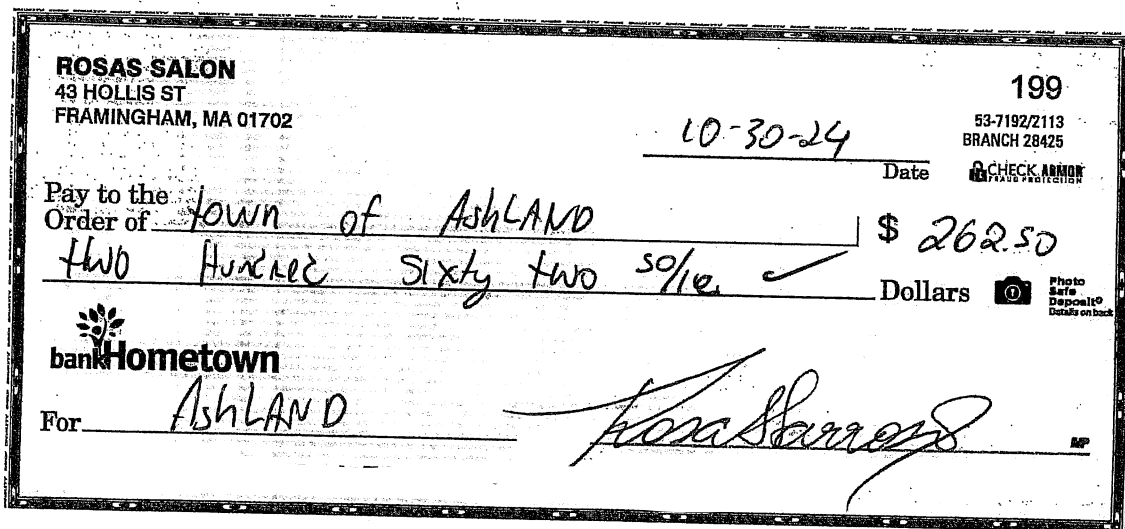 ROSAS SALON
43 HOLLIS ST
FRAMINGHAM, MA 01702
199
53-7192/2113
BRANCH 28425
10-30-24
Date
CHECK ARMOR
FRAUD PROTECTION
Pay to the
Order of town of AshLAND $ 262.50
two Hundred sixty two 50/10. Dollars
Photo
Safe
Deposit®
Details on back
bankHometown
For AshLAND
Rosa
MP